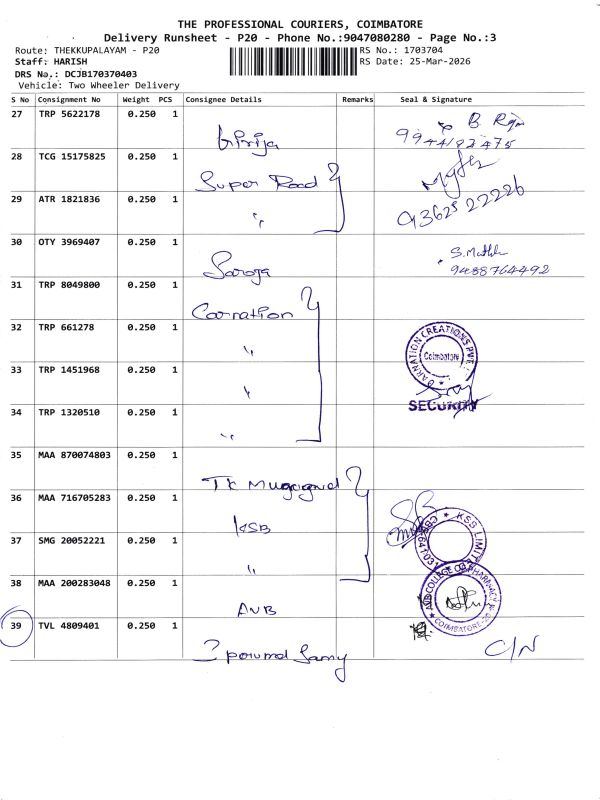 THE PROFESSIONAL COURIERS, COIMBATORE
Delivery Runsheet - P20 - Phone No.:9047080280 - Page No.:3
Route: THEKKUPALAYAM - P20
RS No.: 1703704
Staff: HARISH
RS Date: 25-Mar-2026
DRS No.: DCJB170370403
Vehicle: Two Wheeler Delivery
S No Consignment No Weight PCS Consignee Details Remarks Seal & Signature
27 TRP 5622178 0.250 1
Girija
9944192475
28 TCG 15175825 0.250 1
Super Road
29 ATR 1821836 0.250 1
"
93625 22226
30 OTY 3969407 0.250 1
Saroja
9488764492
31 TRP 8049800 0.250 1
Carnation
32 TRP 661278 0.250 1
"
CARNATION CREATIONS PVT
Coimbatore
33 TRP 1451968 0.250 1
"
SECURITY
34 TRP 1320510 0.250 1
"
35 MAA 870074803 0.250 1
TK
36 MAA 716705283 0.250 1
KSB
KSB LIMITED
37 SMG 20052221 0.250 1
"
38 MAA 200283048 0.250 1
AVB
COLLEGE OF PHARMACY
COIMBATORE-20
39 TVL 4809401 0.250 1
Samy
C/N